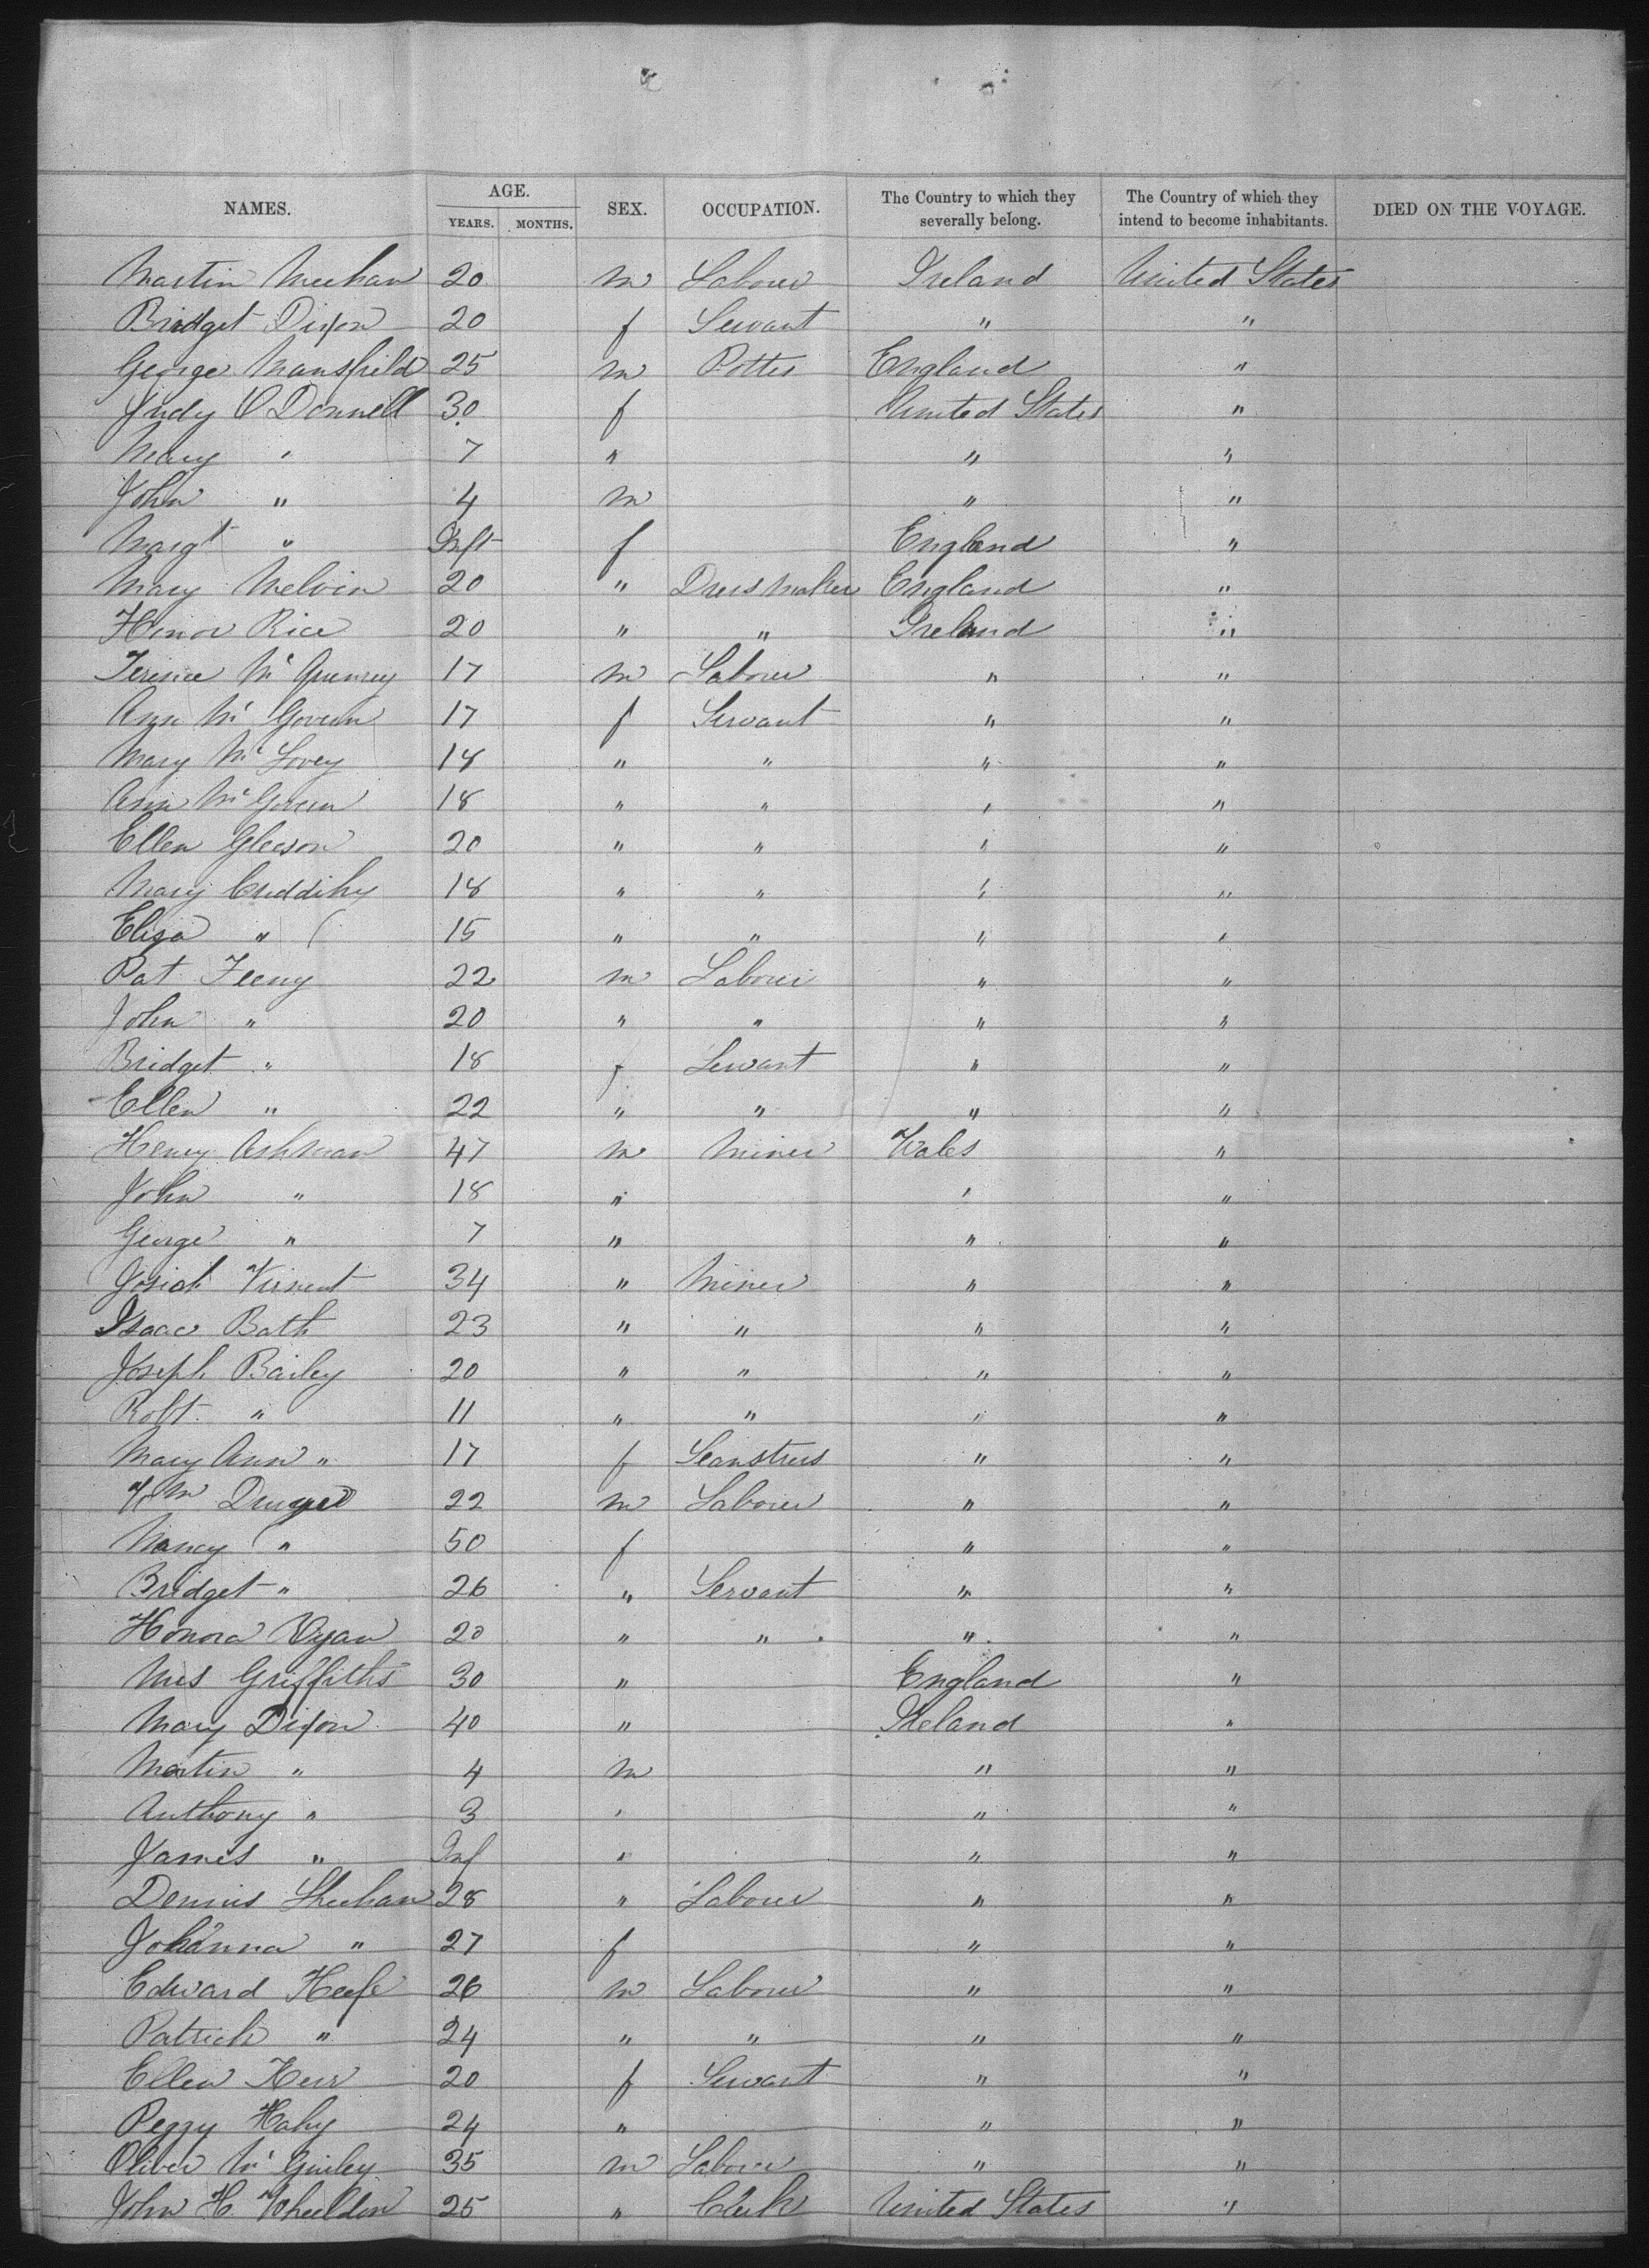 NAMES. AGE. YEARS. MONTHS. SEX. OCCUPATION. The Country to which they severally belong. The Country of which they intend to become inhabitants. DIED ON THE VOYAGE.
Martin Meehan 20 m Labourer Ireland United States
Bridget Dixon 20 f Servant " "
George Mansfield 25 m Potter England "
Judy O'Donnell 30 f United States "
Mary " 7 " " "
John " 4 m " "
Margt " Inft f England "
Mary Melvin 20 " Dress Maker England "
Honor Rice 20 " " Ireland "
Terence Mc 17 m Labourer " "
Ann Mc Govern 17 f Servant " "
Mary Mc 18 " " " "
Ann Mc Govern 18 " " " "
Ellen Gleeson 20 " " " "
Mary Cuddihy 18 " " " "
Eliza " 15 " " " "
Pat Feeny 22 m Labourer " "
John " 20 " " " "
Bridget " 18 f Servant " "
Ellen " 22 " " " "
Henry Ashman 47 m Miner Wales "
John " 18 " " "
George " 7 " " "
Josiah Vincent 34 " Miner " "
Isaac Bath 23 " " " "
Joseph Bailey 20 " " " "
Robt. " 11 " " " "
Mary Ann " 17 f Seamstress " "
Wm 22 m Labourer " "
Nancy " 50 f " "
Bridget " 26 " Servant " "
Honora Ryan 20 " " " "
Mrs Griffiths 30 " England "
Mary Dixon 40 " Ireland "
Martin " 4 m " "
Anthony " 3 " " "
James " Inf " " "
Dennis Sheehan 28 " Labourer " "
Johanna " 27 f " "
Edward Keefe 26 m Labourer " "
Patrick " 24 " " " "
Ellen Kerr 20 f Servant " "
Peggy 24 " " "
Oliver Mc Ginley 35 m Labourer " "
John H. Wheeldon 25 " Clerk United States "